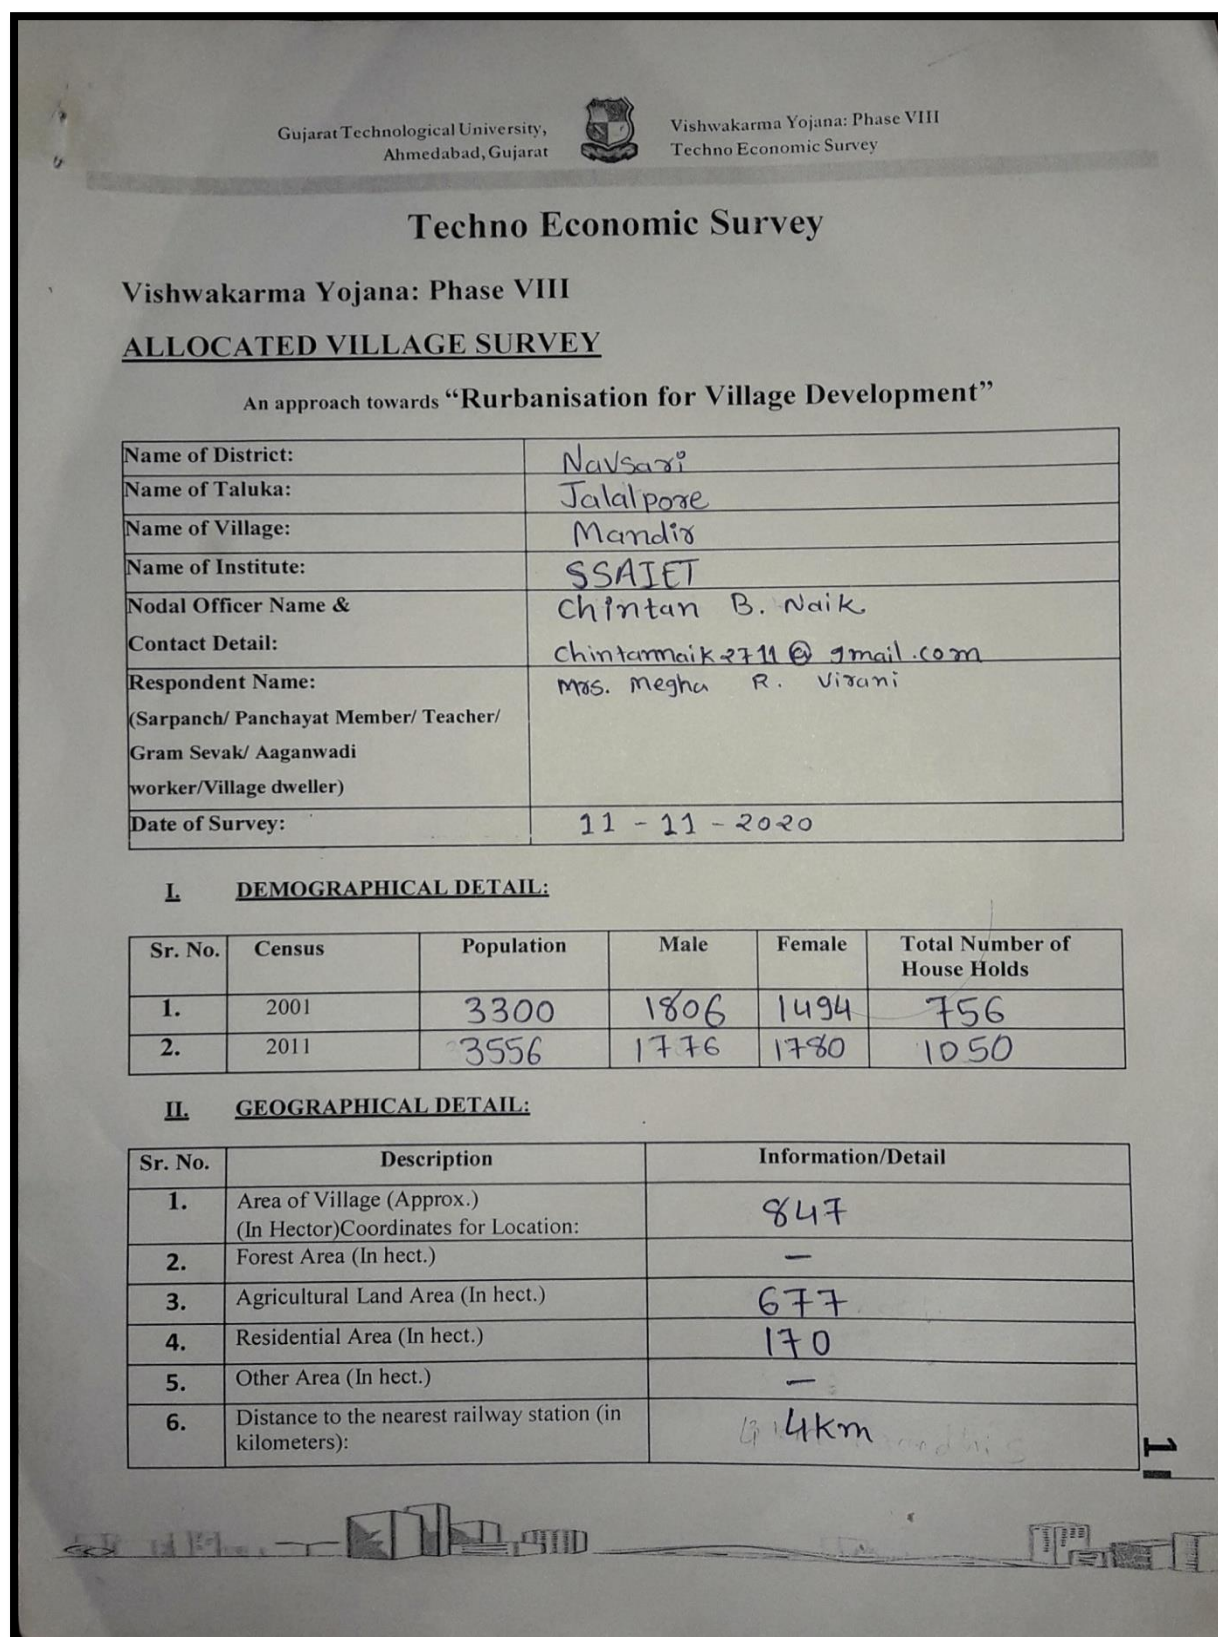 Gujarat Technological University,
Ahmedabad, Gujarat
Vishwakarma Yojana: Phase VIII
Techno Economic Survey
Techno Economic Survey
Vishwakarma Yojana: Phase VIII
ALLOCATED VILLAGE SURVEY
An approach towards “Rurbanisation for Village Development”
Name of District: Navsari
Name of Taluka: Jalalpore
Name of Village: Mandir
Name of Institute: SSAIET
Nodal Officer Name & Chintan B. Naik
Contact Detail: chintannaik2711@gmail.com
Respondent Name: Mrs. Megha R. Virani
(Sarpanch/ Panchayat Member/ Teacher/
Gram Sevak/ Aaganwadi
worker/Village dweller)
Date of Survey: 11 - 11 - 2020
I. DEMOGRAPHICAL DETAIL:
Sr. No. Census Population Male Female Total Number of
House Holds
1. 2001 3300 1806 1494 756
2. 2011 3556 1776 1780 1050
II. GEOGRAPHICAL DETAIL:
Sr. No. Description Information/Detail
1. Area of Village (Approx.)
(In Hector)Coordinates for Location: 847
2. Forest Area (In hect.) —
3. Agricultural Land Area (In hect.) 677
4. Residential Area (In hect.) 170
5. Other Area (In hect.) —
6. Distance to the nearest railway station (in
kilometers): 4km
1